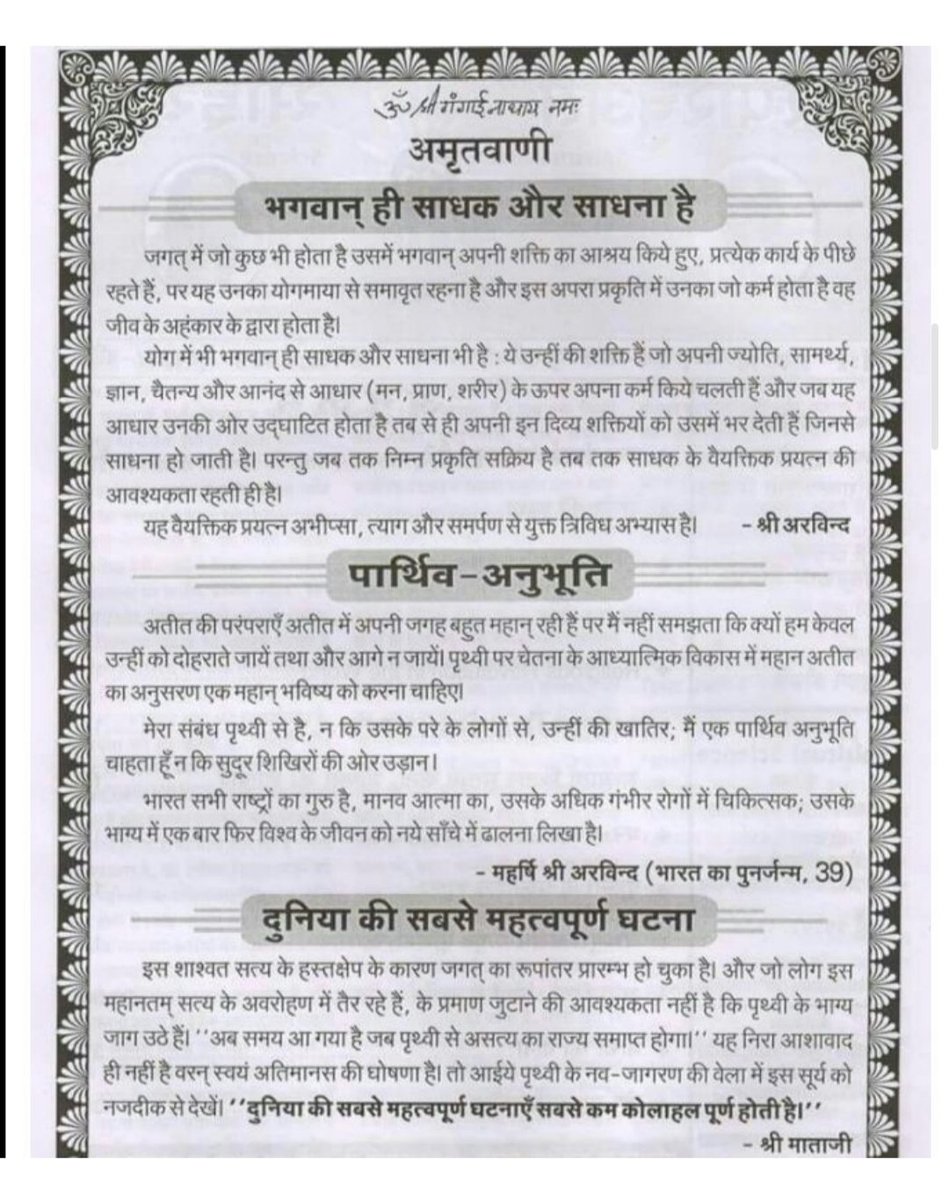 ॐ श्री गंगाई नाथाय नमः
अमृतवाणी
भगवान् ही साधक और साधना है
जगत् में जो कुछ भी होता है उसमें भगवान् अपनी शक्ति का आश्रय किये हुए, प्रत्येक कार्य के पीछे
रहते हैं, पर यह उनका योगमाया से समावृत रहना है और इस अपरा प्रकृति में उनका जो कर्म होता है वह
जीव के अहंकार के द्वारा होता है।
योग में भी भगवान् ही साधक और साधना भी है : ये उन्हीं की शक्ति हैं जो अपनी ज्योति, सामर्थ्य,
ज्ञान, चैतन्य और आनंद से आधार (मन, प्राण, शरीर) के ऊपर अपना कर्म किये चलती हैं और जब यह
आधार उनकी ओर उद्घाटित होता है तब से ही अपनी इन दिव्य शक्तियों को उसमें भर देती हैं जिनसे
साधना हो जाती है। परन्तु जब तक निम्न प्रकृति सक्रिय है तब तक साधक के वैयक्तिक प्रयत्न की
आवश्यकता रहती ही है।
यह वैयक्तिक प्रयत्न अभीप्सा, त्याग और समर्पण से युक्त त्रिविध अभ्यास है। - श्री अरविन्द
पार्थिव-अनुभूति
अतीत की परंपराएँ अतीत में अपनी जगह बहुत महान् रही हैं पर मैं नहीं समझता कि क्यों हम केवल
उन्हीं को दोहराते जायें तथा और आगे न जायें। पृथ्वी पर चेतना के आध्यात्मिक विकास में महान अतीत
का अनुसरण एक महान् भविष्य को करना चाहिए।
मेरा संबंध पृथ्वी से है, न कि उसके परे के लोगों से, उन्हीं की खातिर; मैं एक पार्थिव अनुभूति
चाहता हूँ न कि सुदूर शिखिरों की ओर उड़ान।
भारत सभी राष्ट्रों का गुरु है, मानव आत्मा का, उसके अधिक गंभीर रोगों में चिकित्सक; उसके
भाग्य में एक बार फिर विश्व के जीवन को नये साँचे में ढालना लिखा है।
- महर्षि श्री अरविन्द (भारत का पुनर्जन्म, 39)
दुनिया की सबसे महत्वपूर्ण घटना
इस शाश्वत सत्य के हस्तक्षेप के कारण जगत् का रूपांतर प्रारम्भ हो चुका है। और जो लोग इस
महानतम् सत्य के अवरोहण में तैर रहे हैं, के प्रमाण जुटाने की आवश्यकता नहीं है कि पृथ्वी के भाग्य
जाग उठे हैं। ''अब समय आ गया है जब पृथ्वी से असत्य का राज्य समाप्त होगा।'' यह निरा आशावाद
ही नहीं है वरन् स्वयं अतिमानस की घोषणा है। तो आईये पृथ्वी के नव-जागरण की वेला में इस सूर्य को
नजदीक से देखें। ''दुनिया की सबसे महत्वपूर्ण घटनाएँ सबसे कम कोलाहल पूर्ण होती है।''
- श्री माताजी